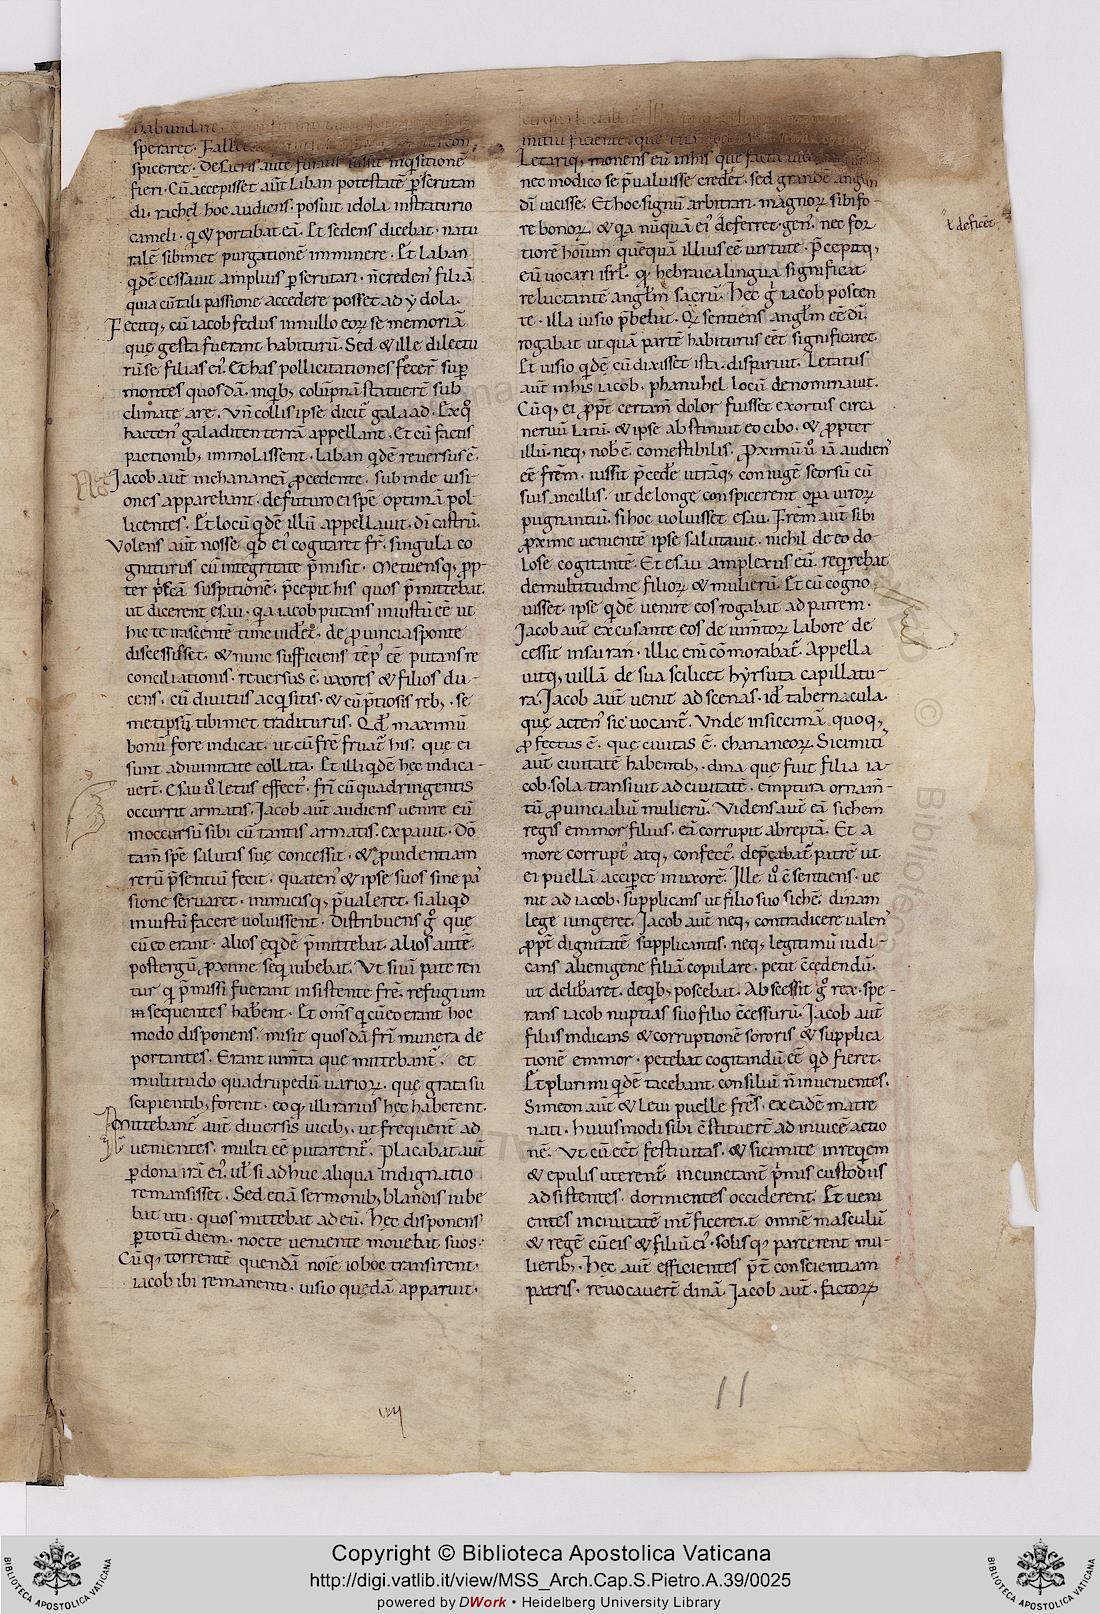 habundare
speraret. Fall
spiceret. De sacris aute furatis iussit inq̇sitionē
fieri. Cū accepisset aūt Laban potestatē ꝑscrutan
di. rachel hoc audiens. posuit idola instraturio
cameli. q̇ & portabat eā. Et sedens dicebat. natu
ralē sibimet purgationē imminere. Et laban
q̇dē cessauit amplius ꝑscrutari. n̄ creden᷒ filiā
quia cū tali passione accedere posset ad ydola.
Fecitq; cū iacob fedus in nullo eoꝝ se memoriā
que gesta fuerant habiturū. Sed & ille dilectu
rū se filias ei᷒. Et has pollicitationes fecer̄ sup̄
montes quosdā. inq̇b; colūpnā statuer̄t sub
climate are. Vn̄ collis ipse dicit᷑ galaad. Ex qͦ
hacten᷒ galaditen terrā appellant. Et cū factis
pactionib; immolassent. Laban q̇dē reuersus ē.
Jacob aūt in chananeā p̄cedente. subinde uisi
ones apparebant. de futuro ei spē optimā pol
licentes. Et locū q̇dē illū appellauit. dī castrū.
Volens aūt nosse q̇d ei᷒ cogitaret fr̄. singula co
gniturus cū integritate p̄misit. Metuensq; ꝓp
ter p̄scā suspitionē. p̄cepit his quos p̄mittebat.
ut dicerent esau. q̇a iacob putans iniustū eē ut
hic te irascente tunc uider&. de ꝓuincia sponte
discessisset. & nunc sufficiens tēp᷒ eē putans re
conciliationis. reuersus ē. uxores & filios du-
cens. cū diuitiis acq̇sitis. & cū p̄tiosis reb; . se
metipsū tibimet traditurus. Qd̄ maximū
bonū fore indicat. ut cū fr̄e fruat᷑ his. que ei
sunt a diuinitate collata. Et illi q̇dē hec indica-
uer̄t. Esau ū letus effect᷒. fr̄i cū quadringentis
occurrit armatis. Jacob aūt audiens uenire eū
in occursū sibi cū tantis armatis. expauit. Dō
tam̄ spē salutis sue concessit. & ꝓuidentiam
rerū p̄sentiū fecit. quaten᷒ & ipse suos sine pas
sione seruaret. inimicisq; p̄ualeret. si aliq̇d
iniustū facere uoluissent. Distribuens gͦ que
cū eo erant. alios eq̇dē p̄mittebat. alios autē.
postergū ꝓxime seq̇ iubebat. Vt si uim pateren
tur q̇ p̄missi fuerant insistente fr̄e. refugium
in sequentes haber̄ent. Et om̄s q̇ cū eo erant hoc
modo disponens. misit quosdā fr̄i munera de
portantes. Erant ium̄ta que mittebant᷑. et
multitudo quadrupedū uarioꝝ. que grata su
scipientib; forent. eo q; illi rarius hec haberent.
Mittebant᷑ aūt diuersis uicib; . ut frequent᷑ ad
uenientes. multi eē putarent᷑. Placabat aūt
ꝑ dona irā ei᷒. ul̄ si adhuc aliqua indignatio
remansisset. Sed etiā sermonib; blandis iube
bat uti. quos mittebat ad eū. Hec disponens
ꝑ totū diem. nocte ueniente mouebat suos.
Cūq; torrentē quendā noīe ioboc transirent.
iacob ibi remanenti. uisio quedā apparuit.
mittū faciente. que
Letatiq; monens eū in his que facta
nec modico se p̄ualuisse crederet. sed grandē anglm
dī uicisse. Et hoc signū arbitrari. magnoꝝ sibi fo
re bonoꝝ. & q̇a nūquā ei᷒ deferret gen᷒. nec for
tiorē hoīum quēquā illius eē uirtute. P̄cepitq;
eū uocari isrl̄. qd̄ hebraica lingua significat
reluctantē angl̄m sacrū. Hec gͦ iacob poscen
te. illa uisio p̄bebat. Qi sentiens angl̄m eē dī.
rogabat ut quā partē habiturus eēt significaret.
Et uisio q̇dē cū dixisset ista. disparuit. Letatus
aūt in his iacob. phanuhel locū denominauit.
Cūq; ei ꝓpt̄ certam̄ dolor fuisset exortus circa
neruū latū. & ipse abstinuit eo cibo. & ꝓpter
illū. neq; nob̄ ē. comestibilis. Proximū ū iā audien᷒
eē fr̄em. iussit p̄cede᷑ utrāq; coniugē seorsū cū
suis ancillis. ut de longe conspicerent opa uiroꝝ
pugnantiū. si hoc uoluisset esau. Fr̄em aūt sibi
ꝓxime uenientē ipse salutauit. nichil de eo do
lose cogitante. Et esau amplexus eū. reqrebat
de multitudine filioꝝ & mulierū. Et cū cogno
uisset. ipse q̇dē uenire eos rogabat ad patrem.
Jacob aūt excusante eos de ium̄toꝝ labore de
cessit in saram̄. illic eni cōmorabat᷑. Appella
uitq; uillā de sua scilicet hyrsuta capillatu-
ra. Jacob aūt uenit ad scenas. id ē tabernacula.
que acten᷒ sic uocant᷑. Vnde in siecimā quoq;
ꝓfectus ē. que ciuitas ē. chananeoꝝ. Sicimiti
aūt ciuitatē habentib; . dina que fuit filia ia-
cob. sola transiuit ad ciuitatē. emptura ornam̄-
tū ꝓuincialiū mulierū. Videns aūt eā sichem
regis emmor filius. eā corrupit abreptā. Et a
more corrupt᷒ atq; confect᷒. dep̄cabat᷑ patrē ut
ei puellā acciperet in uxorē. Ille ū c̄sentiens. ue
nit ad iacob. supplicans ut filio suo sichē. dinam
lege iungeret. Jacob aūt neq; contradicere ualen᷒
ꝓpt̄ dignitatē supplicantis. neq; legitimū iudi-
cans alienigene filiā copulare. petit c̄cedendū.
ut delib̄aret. de q̇b; poscebat. Abscessit gͦ rex. spe-
rans iacob nuptias suo filio c̄cessurū. Jacob aūt
filiis indicans & corruptionē sororis & supplica
tionē emmor. petebat cogitandū eē q̇d fieret.
Et plurimi q̇dē tacebant. consiliū n̄ inuenientes.
Simeon aūt & Leui puelle fr̄es. ex eadē matre
nati. huiusmodi sibi c̄stituer̄t ad inuicē actio
nē. Vt cū eēt festiuitas. & sicimite in reqem
& epulis uterent᷑. incunctant᷑ p̄mis custodiis
adsistentes. dormientes occiderent. Et ueni
entes in ciuitatē int̄ficerer̄t omnē masculū
& regē cū eis & filiū ei᷒. solisq; parcerent mu-
lierib; . Hec aūt efficientes p̄t conscientiam
patris. reuocauer̄t dinā. Jacob aūt. factoꝝ
ł deficēt
11
Copyright © Biblioteca Apostolica Vaticana
http://digi.vatlib.it/view/MSS_Arch.Cap.S.Pietro.A.39/0025
powered by DWork • Heidelberg University Library
BIBLIOTECA APOSTOLICA VATICANA
BIBLIOTECA APOSTOLICA VATICANA